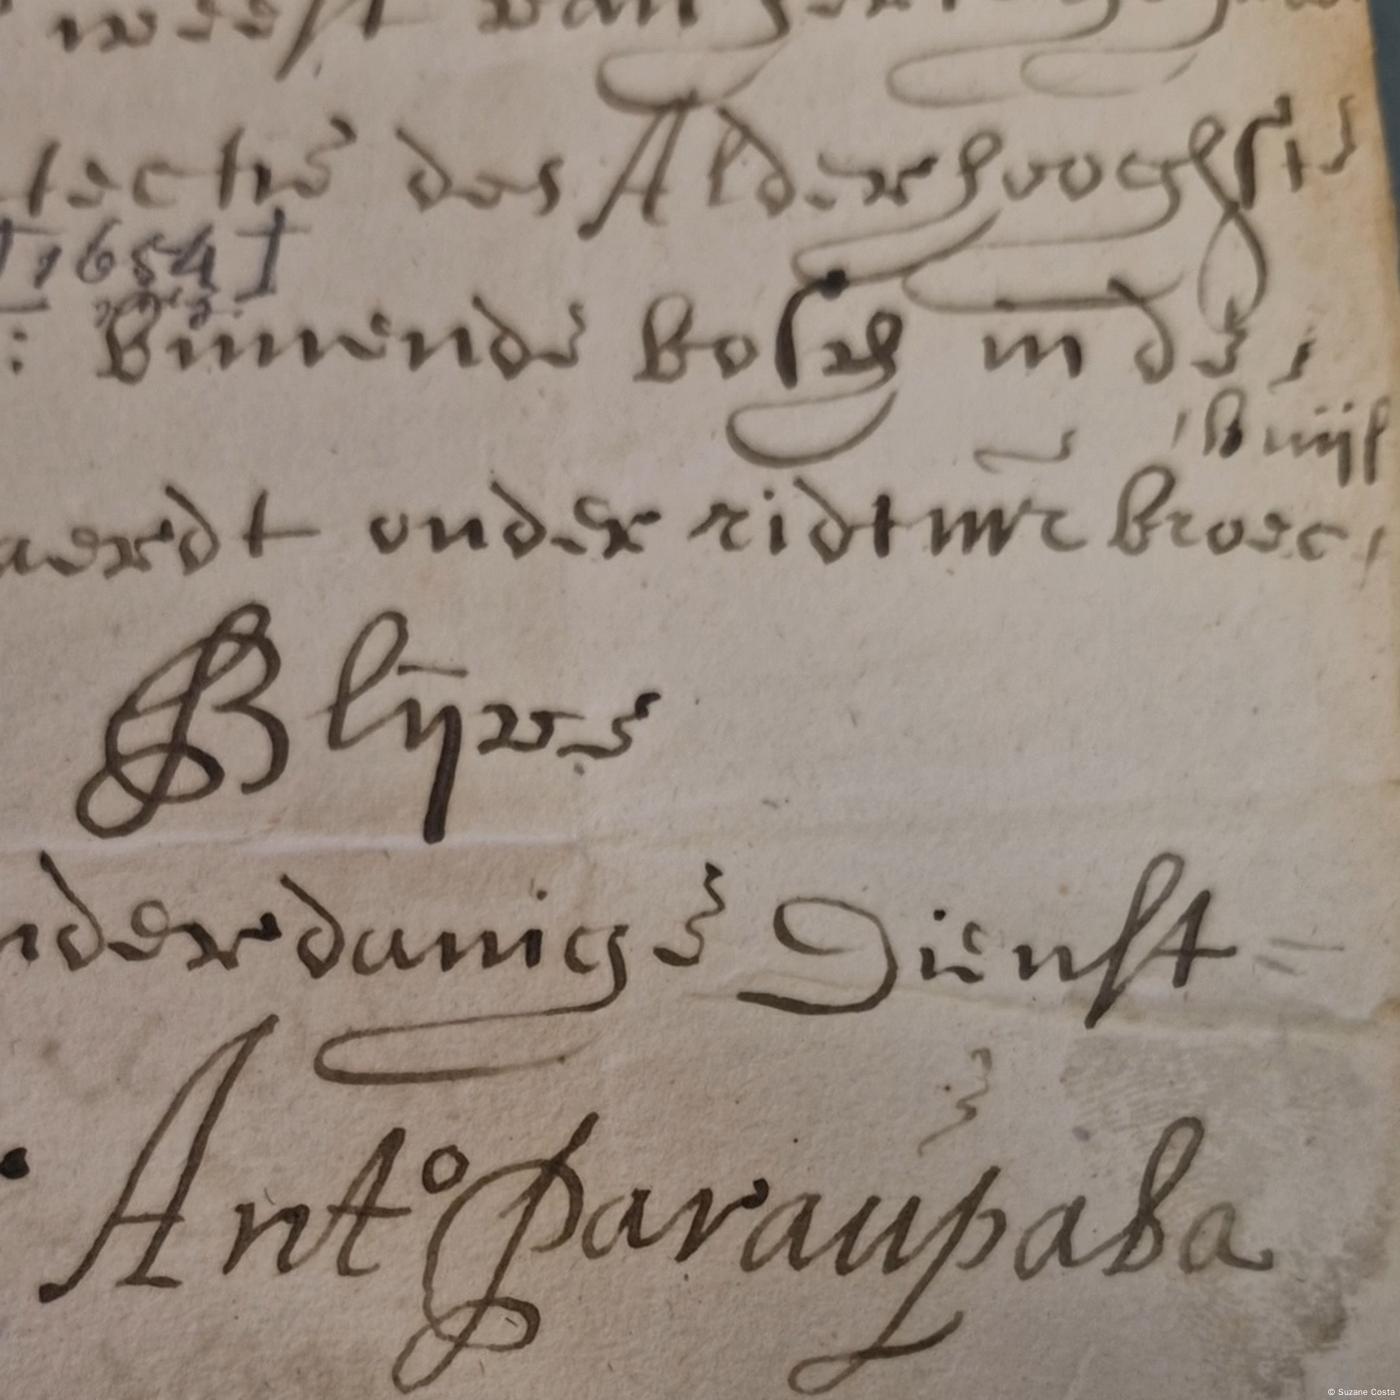 weest van
tectie des Alderhooghste
[1654]
: binnende bosch in de,
t' huijs
aerdt onder ridtmr broec,
Blijve
nderdanige Dienst=
Anto Paraupaba
© Suzane Costa